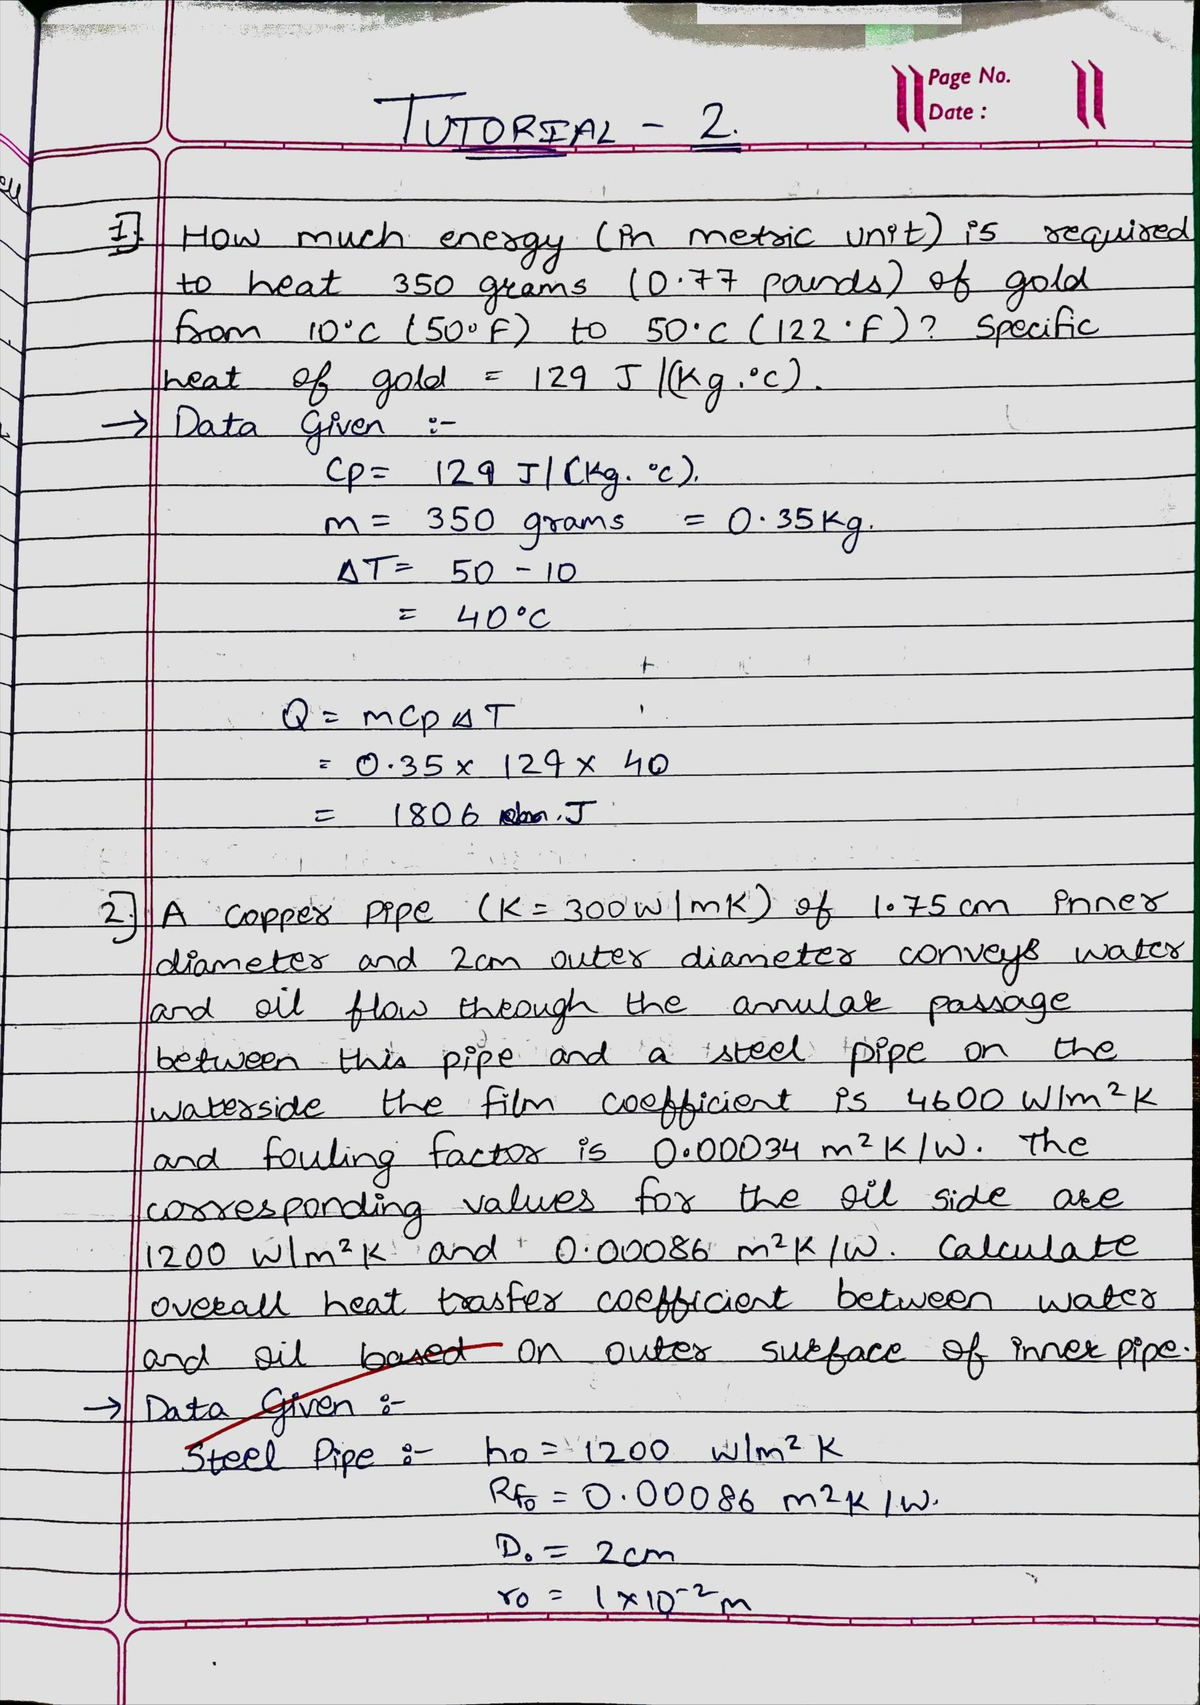 Page No.
Date :
TUTORIAL - 2.
1] How much energy (in metric unit) is required
to heat 350 grams (0.77 pounds) of gold
from 10°C (50°F) to 50°C (122°F)? Specific
heat of gold = 129 J/(Kg.°C).
→ Data Given :-
Cp = 129 J/(Kg.°C).
m = 350 grams = 0.35Kg.
ΔT = 50 - 10
= 40°C
Q = mCpΔT
= 0.35 x 129 x 40
= 1806 J
2] A copper pipe (K = 300W/mK) of 1.75 cm inner
diameter and 2cm outer diameter conveys water
and oil flow through the annular passage
between this pipe and a steel pipe on the
waterside the film coefficient is 4600 W/m²K
and fouling factor is 0.00034 m²K/W. The
corresponding values for the oil side are
1200 W/m²K and 0.00086 m²K/W. Calculate
overall heat trasfer coefficient between water
and oil based on outer surface of inner pipe.
→ Data Given :-
Steel Pipe :- ho = 1200 W/m² K
Rfo = 0.00086 m²K/W.
Do = 2cm
ro = 1x10⁻² m